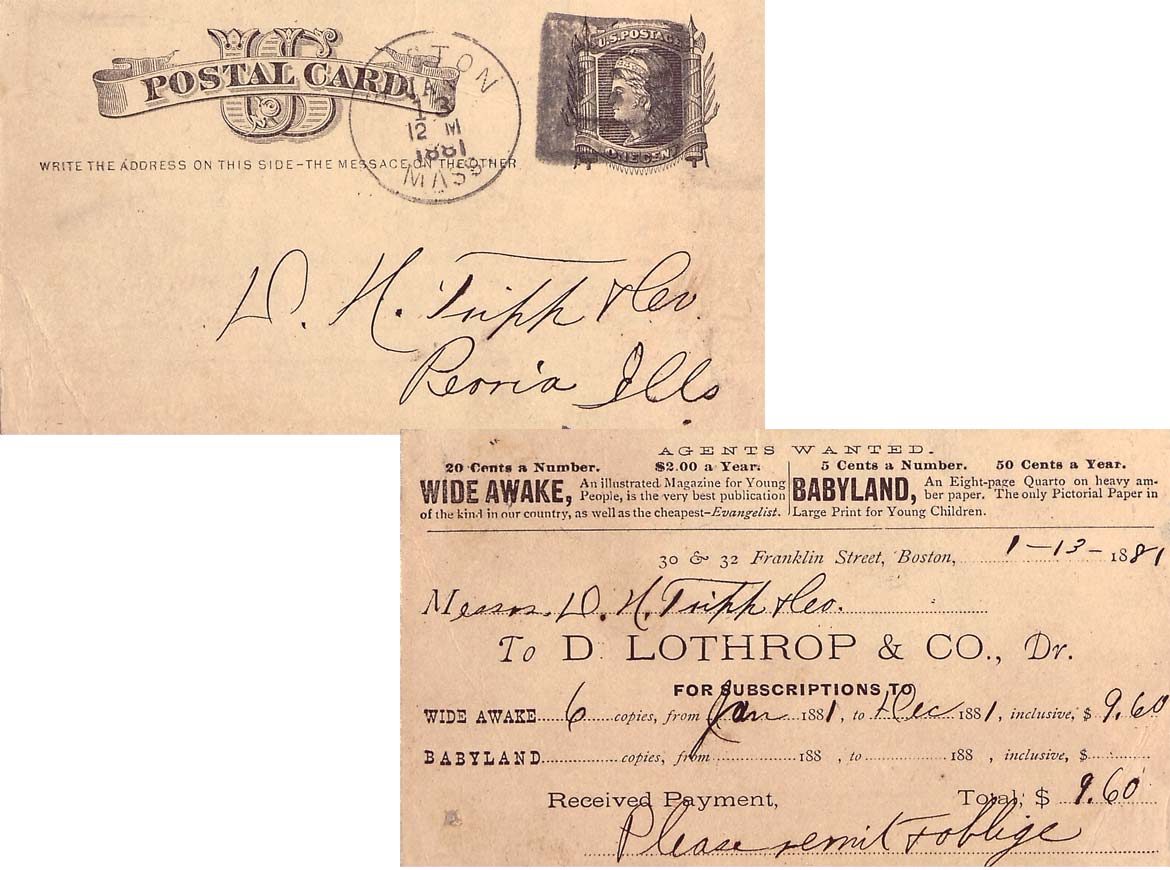 U S
POSTAL CARD
STON
JAN
13
12 M
1881
MASS
U.S. POSTAGE
ONE CENT
WRITE THE ADDRESS ON THIS SIDE-THE MESSAGE ON THE OTHER
D. H. Tripp & Co.
Peoria Ills
AGENTS WANTED.
20 Cents a Number. $2.00 a Year.
WIDE AWAKE, An illustrated Magazine for Young
People, is the very best publication
of the kind in our country, as well as the cheapest-Evangelist.
5 Cents a Number. 50 Cents a Year.
BABYLAND, An Eight-page Quarto on heavy am-
ber paper. The only Pictorial Paper in
Large Print for Young Children.
30 & 32 Franklin Street, Boston, 1-13-1881
Messrs. D. H. Tripp & Co.
To D. LOTHROP & CO., Dr.
FOR SUBSCRIPTIONS TO
WIDE AWAKE 6 copies, from Jan 1881, to Dec 1881, inclusive, $ 9.60
BABYLAND copies, from 188 , to 188 , inclusive, $
Received Payment, Total, $ 9.60
Please remit & oblige